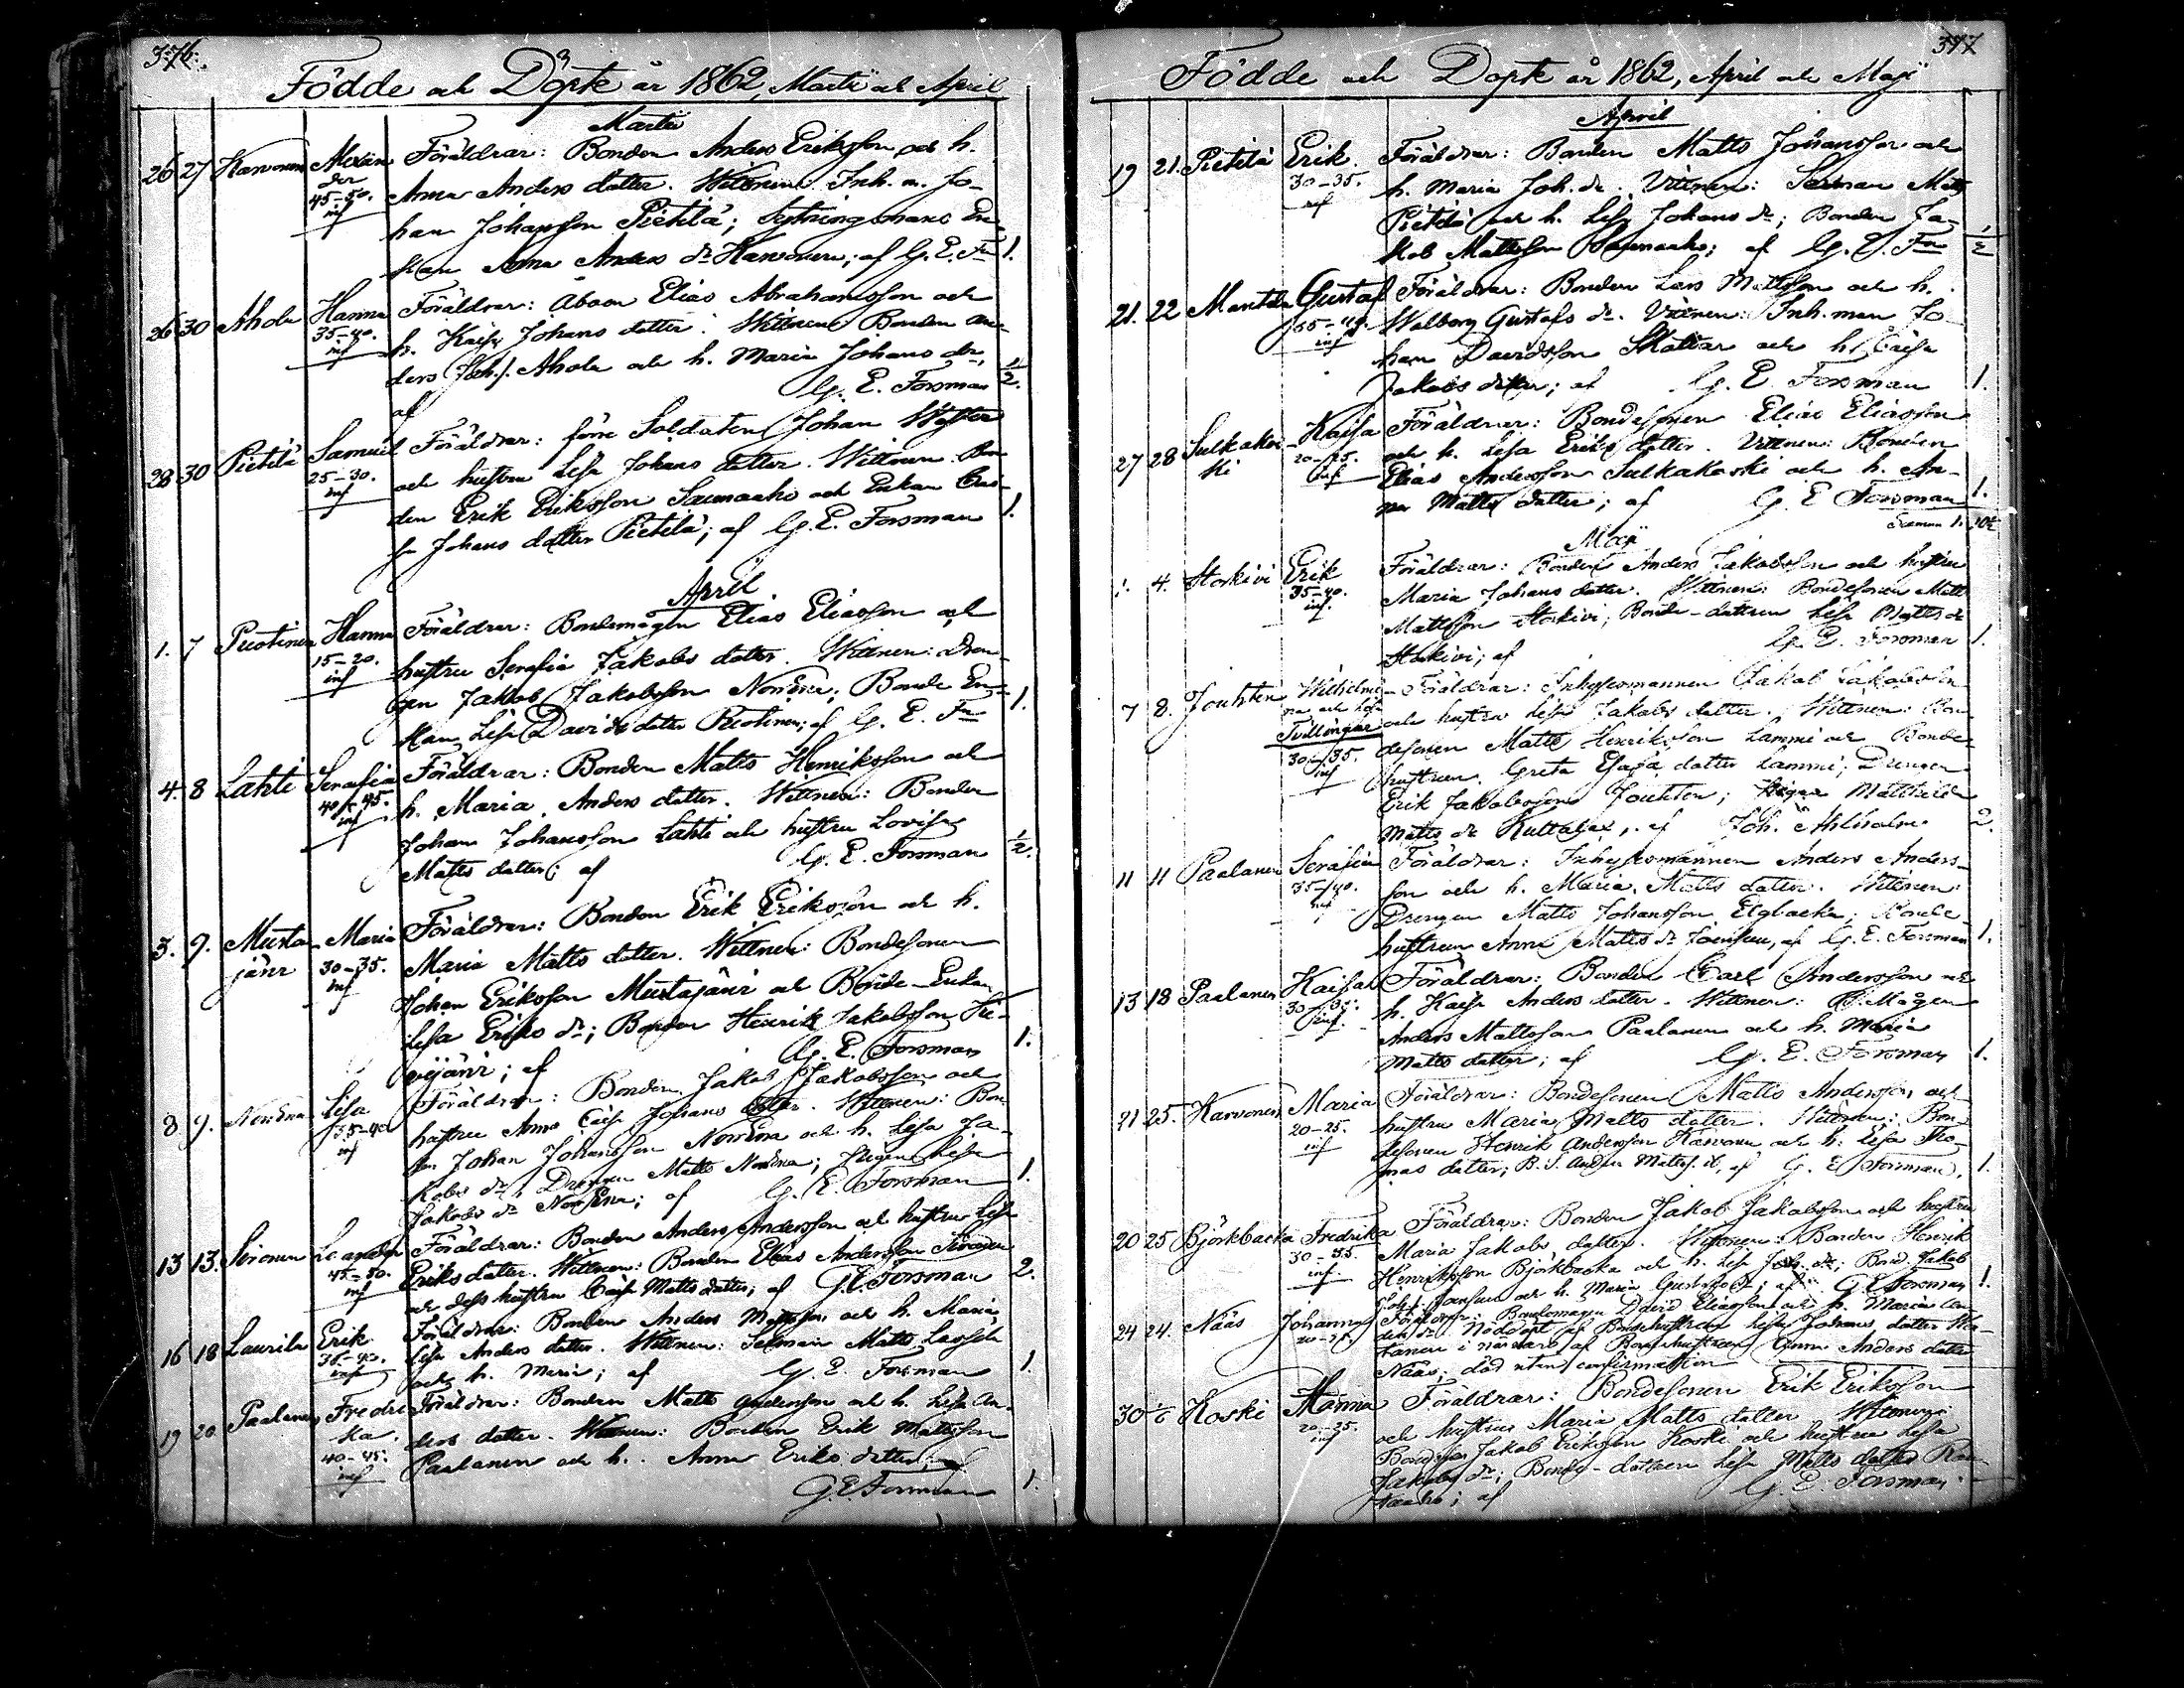 376.
Födde och Döpte år 1862, Martii och April
Martii
26 27 Karvonen Alexan Föräldrar: Bonden Anders Eriksson och h.
der 45–50. inf Anna Anders datter. Wittnen: Inh. m. Jo-
han Johansson Pietilä; Sytningsmans En-
kan Anna Anders dr Karvonen; af G. E. Fn 1.
26 30 Ahola Hanna Föräldrar: Åboen Elias Abrahamsson och
35–40. inf h. Kaisa Johans datter. Wittnen: Bonden An-
ders Joh.s. Ahola och h. Maria Johans dr,
af G. E. Forsman 1/2.
28 30 Pietilä Samuel Föräldrar: förre Soldaten Johan
25–30. inf och hustru Lisa Johans datter. Wittnen: Bon-
den Erik Eriksson Saunaaho och Enkan
Johans datter Pietilä; af G. E. Forsman 1.
April
1. 7 Puotinen Hanna Föräldrar: Bondemågen Elias Eliasson och
15–20. inf hustru Serafia Jakobs datter. Wittnen: Dren-
gen Jakob Jakobsson Norrena; Bonde En-
kan Lisa Davids datter Puotinen; af G. E. Fn 1.
4. 8 Lahti Serafia Föräldrar: Bonden Matts Henriksson och
40–45. inf h. Maria Anders datter. Wittnen: Bonden
Johan Johansson Lahti och hustru Lovisa
Matts datter; af G. E. Forsman 1/2.
3. 9. Musta- Maria Föräldrar: Bonden Erik Eriksson och h.
järvi 30–35. inf Maria Matts datter. Wittnen: Bondesonen
Johan Eriksson Mustajärvi och Bonde-Enkan
Lisa Eriks dr; Bonden Henrik Jakobsson
järvi; af G. E. Forsman 1.
8 9. Norrena Lisa Föräldrar: Bonden Jakob Jakobsson och
35–40 inf hustru Anna Caisa Johans datter. Wittnen: Bon-
den Johan Johansson Norrena och h. Lisa Ja-
kobs dr, Drengen Matts Norrena; Pigan Lisa
Jakobs dr Norrena; af G. E. Forsman 1.
13 13. Sironen Leander Föräldrar: Bonden Anders Andersson och hustru Lisa
45–50. inf Eriks datter. Wittnen: Bonden Elias Andersson Sironen
och dess hustru Caisa Matts datter; af G. E. Forsman 2.
16 18 Laurila Erik Föräldrar: Bonden Anders Mattsson och h. Maria
35–40. inf Lisa Anders datter. Wittnen: Matts
och h. Maria; af G. E. Forsman 1.
19 20 Paalanen Fredri- Föräldrar: Bonden Matts Andersson och h. Lisa An-
ka. 40–45. inf ders datter. Wittnen: Bonden Erik Mattsson
Paalanen och h. Anna Eriks datter; af
G. E. Forsman 1.
377
Födde och Döpte år 1862, April och Maji
April
19 21. Pietilä Erik. Föräldrar: Bonden Matts Johansson och
30–35. inf h. Maria Joh. dr. Vittnen: Matts
Pietilä och h. Lisa Johans dr; Bonden Ja-
kob Mattsson Saunaaho; af G. E. Fn 1/2
21. 22 Mantila Gustaf Föräldrar: Bonden Lars Mattsson och h.
inf Walborg Gustafs dr. Vittnen: Inh. man Jo-
han Davidsson och h. Caisa
Jakobs datter; af G. E. Forsman 1.
27 28 Sulkakos- Kaisa Föräldrar: Bondesonen Elias Eliasson
ki 20–25. inf och h. Lisa Eriks datter. Vittnen: Bonden
Elias Andersson Sulkakoski och h. An-
na Matts datter; af G. E. Forsman 1.
Maji
1. 4. Storkivi Erik Föräldrar: Bonden Anders Jakobsson och hustru
35–40. inf. Maria Johans datter. Wittnen: Bondesonen Matts
Mattsson Storkivi; Bonde-dattren Lisa Matts dr
Storkivi; af G. E. Forsman 1.
7 8. Jouhten Wilhelmi- Föräldrar: Inhysesmannen Jakob Jakobsson
na och Lisa och hustru Lisa Jakobs datter. Wittnen: Bon-
Tvillingar desonen Matts Henriksson Lammi och Bonde-
30–35. inf hustrun Greta Esaja datter Lammi; Drengen
Erik Jakobsson Jouhten; Pigan Mathilda
Matts dr af Joh. Ahlholm 2.
11 11 Paalanen Serafia Föräldrar: Inhysesmannen Anders Anders-
35–40. inf son och h. Maria Matts datter. Wittnen:
Drengen Matts Johansson Elgbacka; Bonde-
hustrun Anna Matts dr Joensuu, af G. E. Forsman 1.
13 18 Paalanen Kaisa Föräldrar: Bonden Carl Andersson och
30–35. inf. h. Kaisa Anders datter. Wittnen: B. Mågen
Anders Mattsson Paalanen och h. Maria
Matts datter; af G. E. Forsman 1.
21 25. Karvonen Maria Föräldrar: Bondesonen Matts Andersson och
20–25. inf hustru Maria Matts datter. Wittnen: Bon-
desonen Henrik Andersson Karvonen och h. Lisa Tho-
mas datter; B. S. Anders af G. E. Forsman. 1.
20 25 Björkbacka Fredrika Föräldrar: Bonden Jakob Jakobsson och hustru
30–35. inf Maria Jakobs datter. Wittnen: Bonden Henrik
Henriksson Björkbacka och h. Lisa Joh. dr; Bond. Jakob
Joensuu och h. Maria Gustafs dr; af G. E. Forsman 1.
24 24. Näås Johannes Föräldrar: Bondemågen David Eliasson och h. Maria An-
20–25. ders dr. Nöddöpt af Bondehustrun Lisa Johans datter
i närvaro af Bondehustrun Anna Anders datter
Näås; död utan confirmation
30 1/6 Koski Hanna Föräldrar: Bondesonen Erik Eriksson
20–25. inf och hustru Maria Matts datter Wittnen:
Bondeson Jakob Eriksson Koski och hustru Lisa
Jakobs dr; Bonde-dattren Lisa Matts datter
af G. E. Forsman